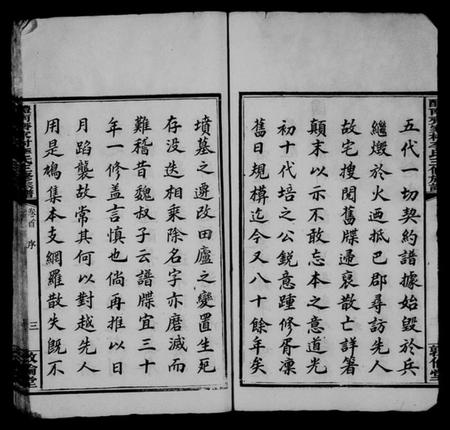 五代一切契約譜據始毀於兵
繼燬於火迺抵巴郡尋訪先人
故宅搜閱舊牒遍裒散亡詳箸
顛末以示不敢忘本之意道光
初十代培之公銳意踵修胥凜
舊日規構迄今又八十餘年矣
墳墓之遷改田廬之變置生死
存没迭相乘除名字亦磨滅而
難稽昔魏叔子云譜牒宜三十
年一修盖言慎也倘再推以日
月蹈襲故常其何以對越先人
用是鳩集本支網羅散失既不
卷首 序
三
敦倫堂